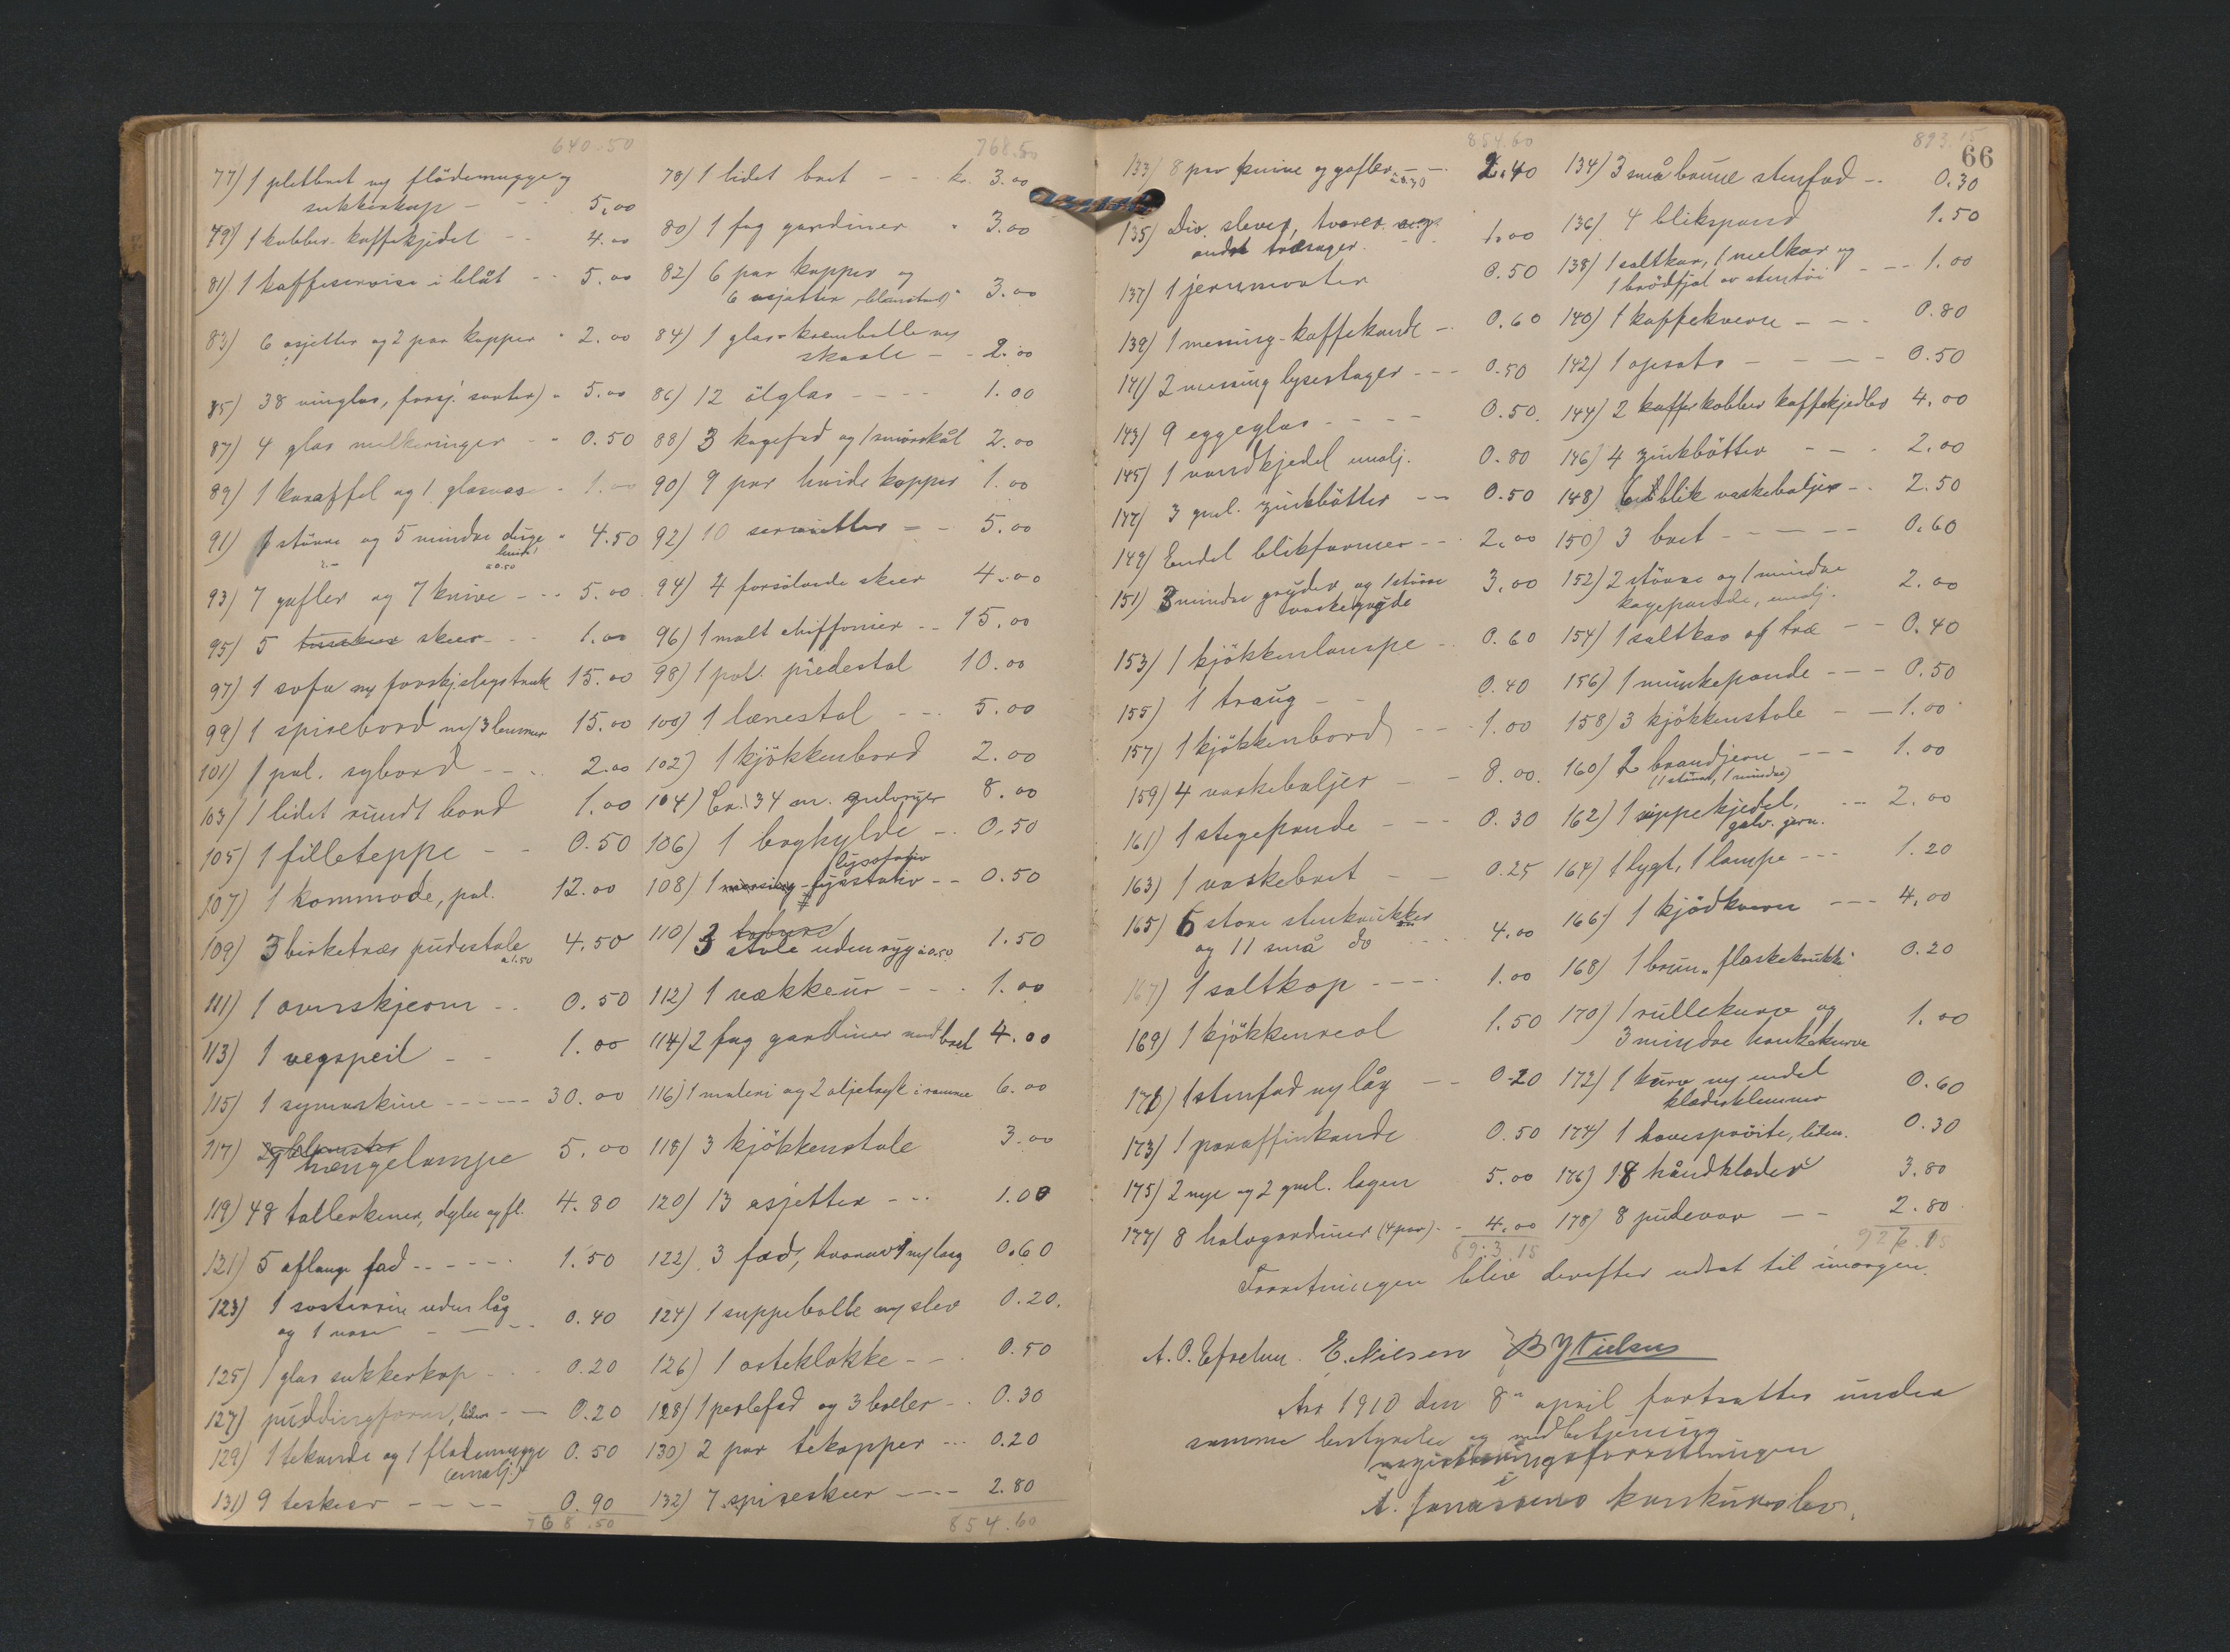 640.50
77) 1 pletbret m/ flödemugge og
sukkerkop - - 5.00
79) 1 kobber. kaffekjedel - - 4.00
81) 1 kaffeservise i blåt - - 5.00
83) 6 asjetter og 2 par kopper " 2.00
85) 38 vinglas, forsj. sorter) " 5.00
87) 4 glas melkeringer - " 0.50
89) 1 karaffel og 1 glasvase - 1.00
91) 1 större og 5 mindre duge " 4.50
hvide
2.- a 0.50
93) 7 gafler og 7 knive - - - 5.00
95) 5 skeer - - - 1.00
97) 1 sofa m/ forskjelligt træk 15.00
99) 1 spisebord m/ 3 lemmer 15.00
101) 1 pol. sybord - - - 2.00
103) 1 lidet rundt bord 1.00
105) 1 filleteppe - - 0.50
107) 1 kommode, pol. 12.00
109) 3 birketræs pudestole 4.50
a 1.50
111) 1 ovnsskjerm - - 0.50
113) 1 vegspeil - - 1.00
115) 1 symaskine - - - - - 30.00
117) 1 hængelampe 5.00
119) 48 tallerkener, dybe og fl. 4.80
121) 5 aflange fad - - - - - 1.50
123) 1 sosterrin uden låg
og 1 vase - - - 0.40
125) 1 glas sukkerkop - - - 0.20
127) puddingform, liden - - 0.20
129) 1 tekande og 1 flødemugge 0.50
(emalj.)
131) 9 teskeer - - - - 0.90
768.50
768.50
78) 1 lidet bret - - kr. 3.00
80) 1 fag gardiner " 3.00
82) 6 par kopper og
6 asjetter "blomstret" 3.00
84) 1 glas-kransbolle m/
skaale - - 2.00
86) 12 ölglas - - - - 1.00
88) 3 kagefad og 1 smörskål 2.00
90) 9 par hvide kopper 1.00
92) 10 servietter - - 5.00
94) 4 forsölvede skeer 4.00
96) 1 malt chiffonier - - 15.00
98) 1 pol. piedestal 10.00
100) 1 lænestol - - - 5.00
102) 1 kjökkenbord 2.00
104) Ca. 34 m. gulvryer 8.00
106) 1 boghylde - - 0.50
lysstativ
108) 1 messing-lysstativ - - 0.50
110) 3 taburet
stole uden ryg a 0.50 1.50
112) 1 vækkeur - - - 1.00
114) 2 fag gardiner med bret 4.00
116) 1 maleri og 2 oljetryk i ramme 6.00
118) 3 kjökkenstole 3.00
120) 13 asjetter - - - 1.00
122) 3 fad, hvorav 1 m/ laag 0.60
124) 1 suppebolle m/ slev 0.20.
126) 1 osteklokke - - - 0.50
128) 1 perlefad og 3 boller - - 0.30
130) 2 par tekopper - - - 0.20
132) 7 spiseskeer - - - - 2.80
854.60
854.60
133) 8 par knive og gafler a 0.30 - - 2.40
135) Div. slever, tvarer og
andet træsager. - - 1.00
137) 1 jernmorter 0.50
139) 1 messing-kaffekande - - 0.60
141) 2 messing lysestager - - - 0.50
143) 9 eggeglas - - - - 0.50.
145) 1 vandkjedel emalj. 0.80
147) 3 gml. zinkbötter - - 0.50
149) Endel blikformer - - - 2.00
151) 3 mindre gryder og 1 större
vaskegryde 3.00
153) 1 kjökkenlampe - - 0.60
155) 1 traug - - 0.40
157) 1 kjökkenbord - - - 1.00
159) 4 vaskebaljer - - 8.00.
161) 1 stegepande - - - 0.30
163) 1 vaskebret - - 0.25
165) 6 store stenkrukker
og 11 små do - - - - 4.00
167) 1 saltkop - - - - 1.00
169) 1 kjökkenreol 1.50
171) 1 stenfad m/ låg - - 0.20
173) 1 parafinkande 0.50
175) 2 nye og 2 gml. lagen 5.00
177) 8 halvgardiner (4 par) - - 4.00
893.15
893.15
66
134) 3 små brune stenfad - - 0.30
136) 4 blikspand 1.50
138) 1 saltkar, 1 melkar og
1 brödfjöl av stentöi - - - 1.00
140) 1 kaffekvern - - - 0.80
142) 1 opsats - - - - 0.50
144) 2 kobber kaffekjedler 4.00
146) 4 zinkbötter - - - 2.00
148) 6 blik vaskebaljer - - 2.50
150) 3 bret - - - - 0.60
152) 2 större og 1 mindre
kagepande, emalj. 2.00
154) 1 saltkar af træ - - 0.40
156) 1 munkepande - - - 0.50
158) 3 kjökkenstole - - 1.00
160) 2 brandjern - - - 1.00
(1 större, 1 mindre)
162) 1 suppekjedel, - - - 2.00
galv. jern.
164) 1 lygt, 1 lampe - - - 1.20
166) 1 kjödkvern - - - 4.00
168) 1 brun "flaskekrukke" 0.20
170) 1 rullekurv og
3 mindre hankekurve 1.00
172) 1 kurv m/ endel
klædesklemmer 0.60
174) 1 havesprøite, liden. 0.30
176) 18 håndklæder 3.80
178) 8 pudevar - - 2.80
927.15
Forretningen blev derefter udsat til imorgen.
E. Nilsen B J Nielsen
Aar 1910 den 8de april fortsattes under
samme bestyrelse og med betjening
registreringsforretningen
i
A. Jonassens konkursbo.